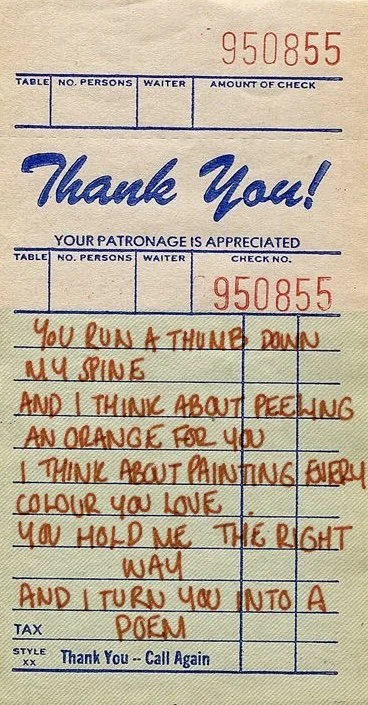 950855
TABLE NO. PERSONS WAITER AMOUNT OF CHECK
Thank You!
YOUR PATRONAGE IS APPRECIATED
TABLE NO. PERSONS WAITER CHECK NO.
950855
YOU RUN A THUMB DOWN
MY SPINE
AND I THINK ABOUT PEELING
AN ORANGE FOR YOU
I THINK ABOUT PAINTING EVERY
COLOUR YOU LOVE.
YOU HOLD ME THE RIGHT
WAY
AND I TURN YOU INTO A
TAX POEM
STYLE XX Thank You -- Call Again